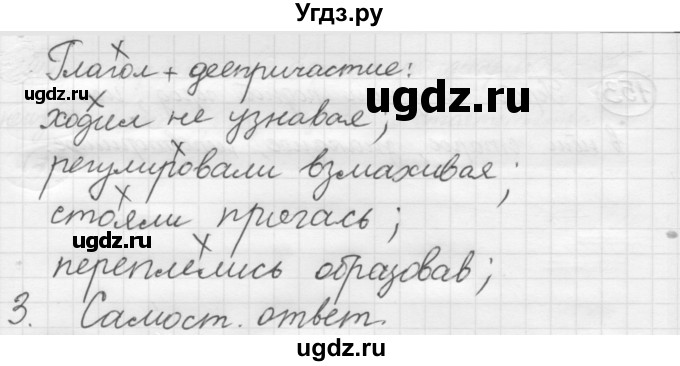 Угдз.ру
Глагол + деепричастие:
ugdz.ru ugdz.ru
ходил не узнавая;
регулировали взмахивая;
стояли прячась;
ugdz.ru
переплелись образовав;
3. Самост. ответ.
ugdz.ru